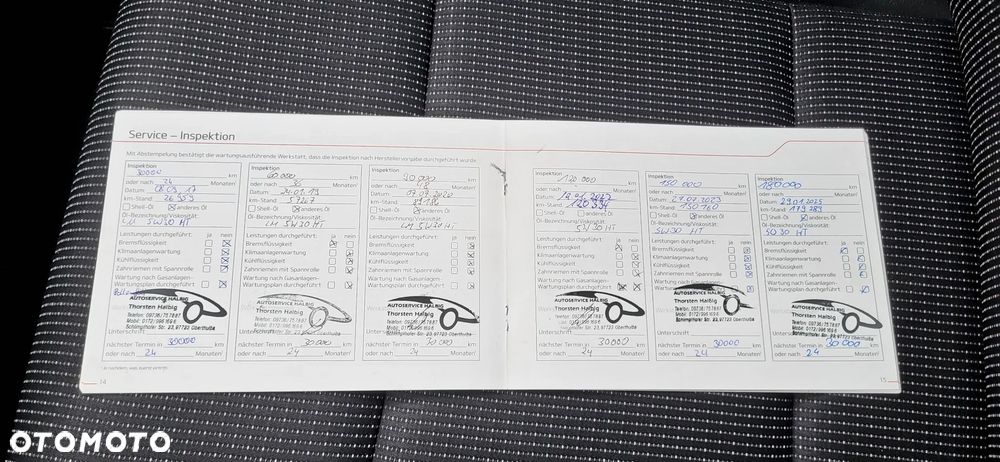 Service – Inspektion
Mit Abstempelung bestätigt die wartungsausführende Werkstatt, dass die Inspektion nach Herstellervorgabe durchgeführt wurde.
Inspektion
30000 km
oder nach 24 Monaten!
Datum 08.09.17
km-Stand 26 959
Shell-Öl anderes Öl
Öl-Bezeichnung/Viskosität:
5W30 HT
Leistungen durchgeführt: ja nein
Bremsflüssigkeit
Klimaanlagenwartung
Kühlflüssigkeit
Zahnriemen mit Spannrolle
Wartung nach Gasanlagen-
Wartungsplan durchgeführt
AUTOSERVICE HALBIG
Thorsten Halbig
Telefon: 09736/757887
Mobil: 0172/996 169 6
Schlimpfhofer Str. 23, 97723 Oberthulba
Unterschrift
nächster Termin in 30000 km
oder nach 24 Monaten!
Inspektion
60 000 km
oder nach 36 Monaten!
Datum 24.01.19
km-Stand 57267
Shell-Öl anderes Öl
Öl-Bezeichnung/Viskosität:
LM 5W30 HT
Leistungen durchgeführt: ja nein
Bremsflüssigkeit
Klimaanlagenwartung
Kühlflüssigkeit
Zahnriemen mit Spannrolle
Wartung nach Gasanlagen-
Wartungsplan durchgeführt
AUTOSERVICE HALBIG
Thorsten Halbig
nächster Termin in 30 000 km
oder nach 24 Monaten!
Inspektion
90 000 km
oder nach 48 Monaten!
Datum
km-Stand
Shell-Öl anderes Öl
Öl-Bezeichnung/Viskosität:
LM 5W30 HT
Leistungen durchgeführt: ja nein
Bremsflüssigkeit
Klimaanlagenwartung
Kühlflüssigkeit
Zahnriemen mit Spannrolle
Wartung nach Gasanlagen-
Wartungsplan durchgeführt
AUTOSERVICE HALBIG
Thorsten Halbig
nächster Termin in 30 000 km
oder nach 24 Monaten!
14
Inspektion
120 000 km
oder nach Monaten!
Datum
km-Stand
Shell-Öl anderes Öl
Öl-Bezeichnung/Viskosität:
5W30 HT
Leistungen durchgeführt: ja nein
Bremsflüssigkeit
Klimaanlagenwartung
Kühlflüssigkeit
Zahnriemen mit Spannrolle
Wartung nach Gasanlagen-
Wartungsplan durchgeführt
AUTOSERVICE HALBIG
Thorsten Halbig
Schlimpfhofer Str. 23, 97723 Oberthulba
Unterschrift
nächster Termin in 30000 km
oder nach 24 Monaten!
Inspektion
150 000 km
oder nach Monaten!
Datum 27.02.2023
km-Stand 150 760
Shell-Öl anderes Öl
Öl-Bezeichnung/Viskosität:
5W30 HT
Leistungen durchgeführt: ja nein
Bremsflüssigkeit
Klimaanlagenwartung
Kühlflüssigkeit
Zahnriemen mit Spannrolle
Wartung nach Gasanlagen-
AUTOSERVICE HALBIG
Thorsten Halbig
Telefon: 09736/757887
Mobil: 0172/996 169 6
Schlimpfhofer Str. 23, 97723 Oberthulba
nächster Termin in 30000 km
oder nach 24 Monaten!
Inspektion
180000 km
oder nach Monaten!
Datum 29.01.2025
km-Stand 179 289
Shell-Öl anderes Öl
Öl-Bezeichnung/Viskosität:
5W30 HT
Leistungen durchgeführt: ja nein
Bremsflüssigkeit
Klimaanlagenwartung
Kühlflüssigkeit
Zahnriemen mit Spannrolle
Wartung nach Gasanlagen-
Wartungsplan durchgeführt
AUTOSERVICE HALBIG
Thorsten Halbig
nächster Termin in 30 000 km
oder nach 24 Monaten!
15
OTOMOTO